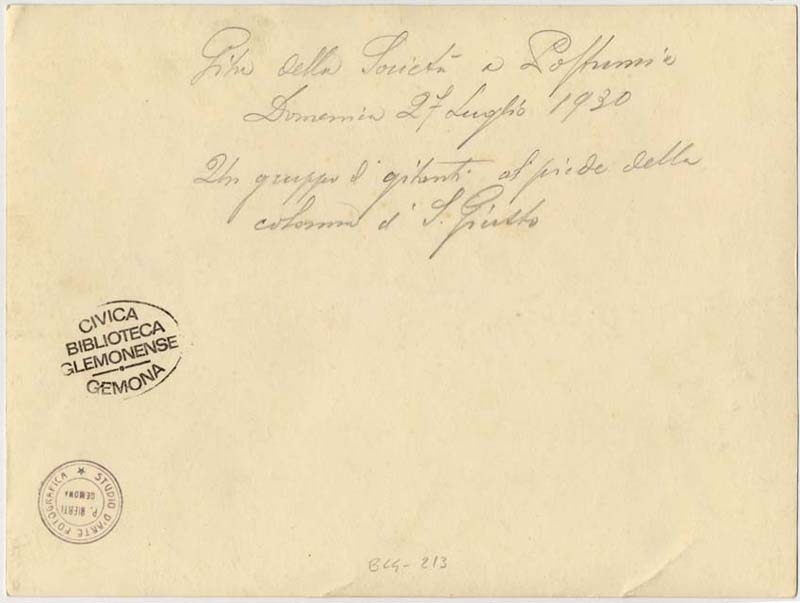 Gita della Società a Postumia
Domenica 27 Luglio 1930
Un gruppo di gitanti al piede della
colonna di S. Giusto
CIVICA
BIBLIOTECA
GLEMONENSE
GEMONA
STUDIO D'ARTE FOTOGRAFICA
P. RIERTI
GEMONA
BCG - 213